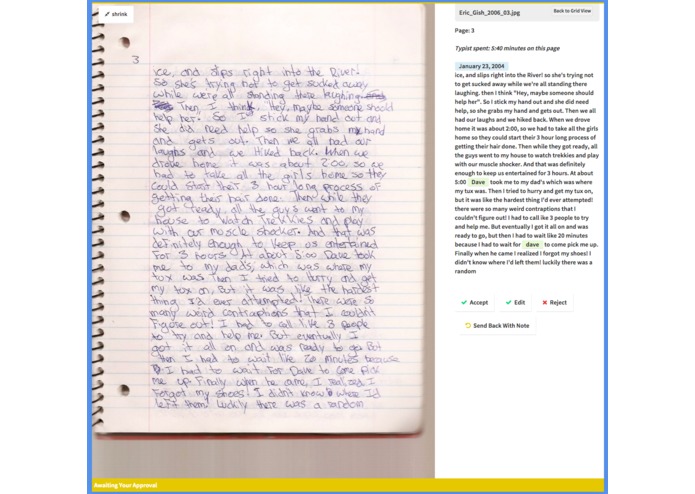 shrink
3
ice, and slips right into the River!
So she's trying not to get sucked away
while we're all standing there laughing.
Then I think, "Hey, maybe someone should
help her". So I stick my hand out and
she did need help so she grabs my hand
and gets out. Then we all had our
laughs and we Hiked back. When we
drove home it was about 2:00. so we
had to take all the girls home so they
could start their 3 hour long process of
getting their hair done. Then while they
got ready, all the guys went to my
house to watch Trekkies and play
with our muscle shocker. And that was
definitely enough to keep us entertained
For 3 hours. At about 5:00 Dave took
me to my dad's, which was where my
tux was. Then I tried to hurry and get
my tux on, But it was like the hardest
thing I'd ever attempted! There were so
many weird contraptions that I couldn't
Figure out! I had to call like 3 people
to try and help me. But eventually I
got it all on and was ready to go. But
then I had to wait like 20 minutes because
I had to wait For Dave to come pick
me up. Finally when he came, I realized I
Forgot my shoes! I didn't know where I'd
left them! Luckily there was a random
Awaiting Your Approval
Eric_Gish_2006_03.jpg
Back to Grid View
Page: 3
Typist spent: 5:40 minutes on this page
January 23, 2004
ice, and slips right into the River! so she's trying not
to get sucked away while we're all standing there
laughing. then I think "Hey, maybe someone should
help her". So I stick my hand out and she did need
help, so she grabs my hand and gets out. Then we all
had our laughs and we hiked back. When we drove
home it was about 2:00, so we had to take all the girls
home so they could start their 3 hour long process of
getting their hair done. Then while they got ready, all
the guys went to my house to watch trekkies and play
with our muscle shocker. And that was definitely
enough to keep us entertained for 3 hours. At about
5:00 Dave took me to my dad's which was where
my tux was. Then I tried to hurry and get my tux on,
but it was like the hardest thing I'd ever attempted!
there were so many weird contraptions that I
couldn't figure out! I had to call like 3 people to try
and help me. But eventually I got it all on and was
ready to go, but then I had to wait like 20 minutes
because I had to wait for dave to come pick me up.
Finally when he came I realized I forgot my shoes! I
didn't know where I'd left them! luckily there was a
random
Accept Edit Reject
Send Back With Note